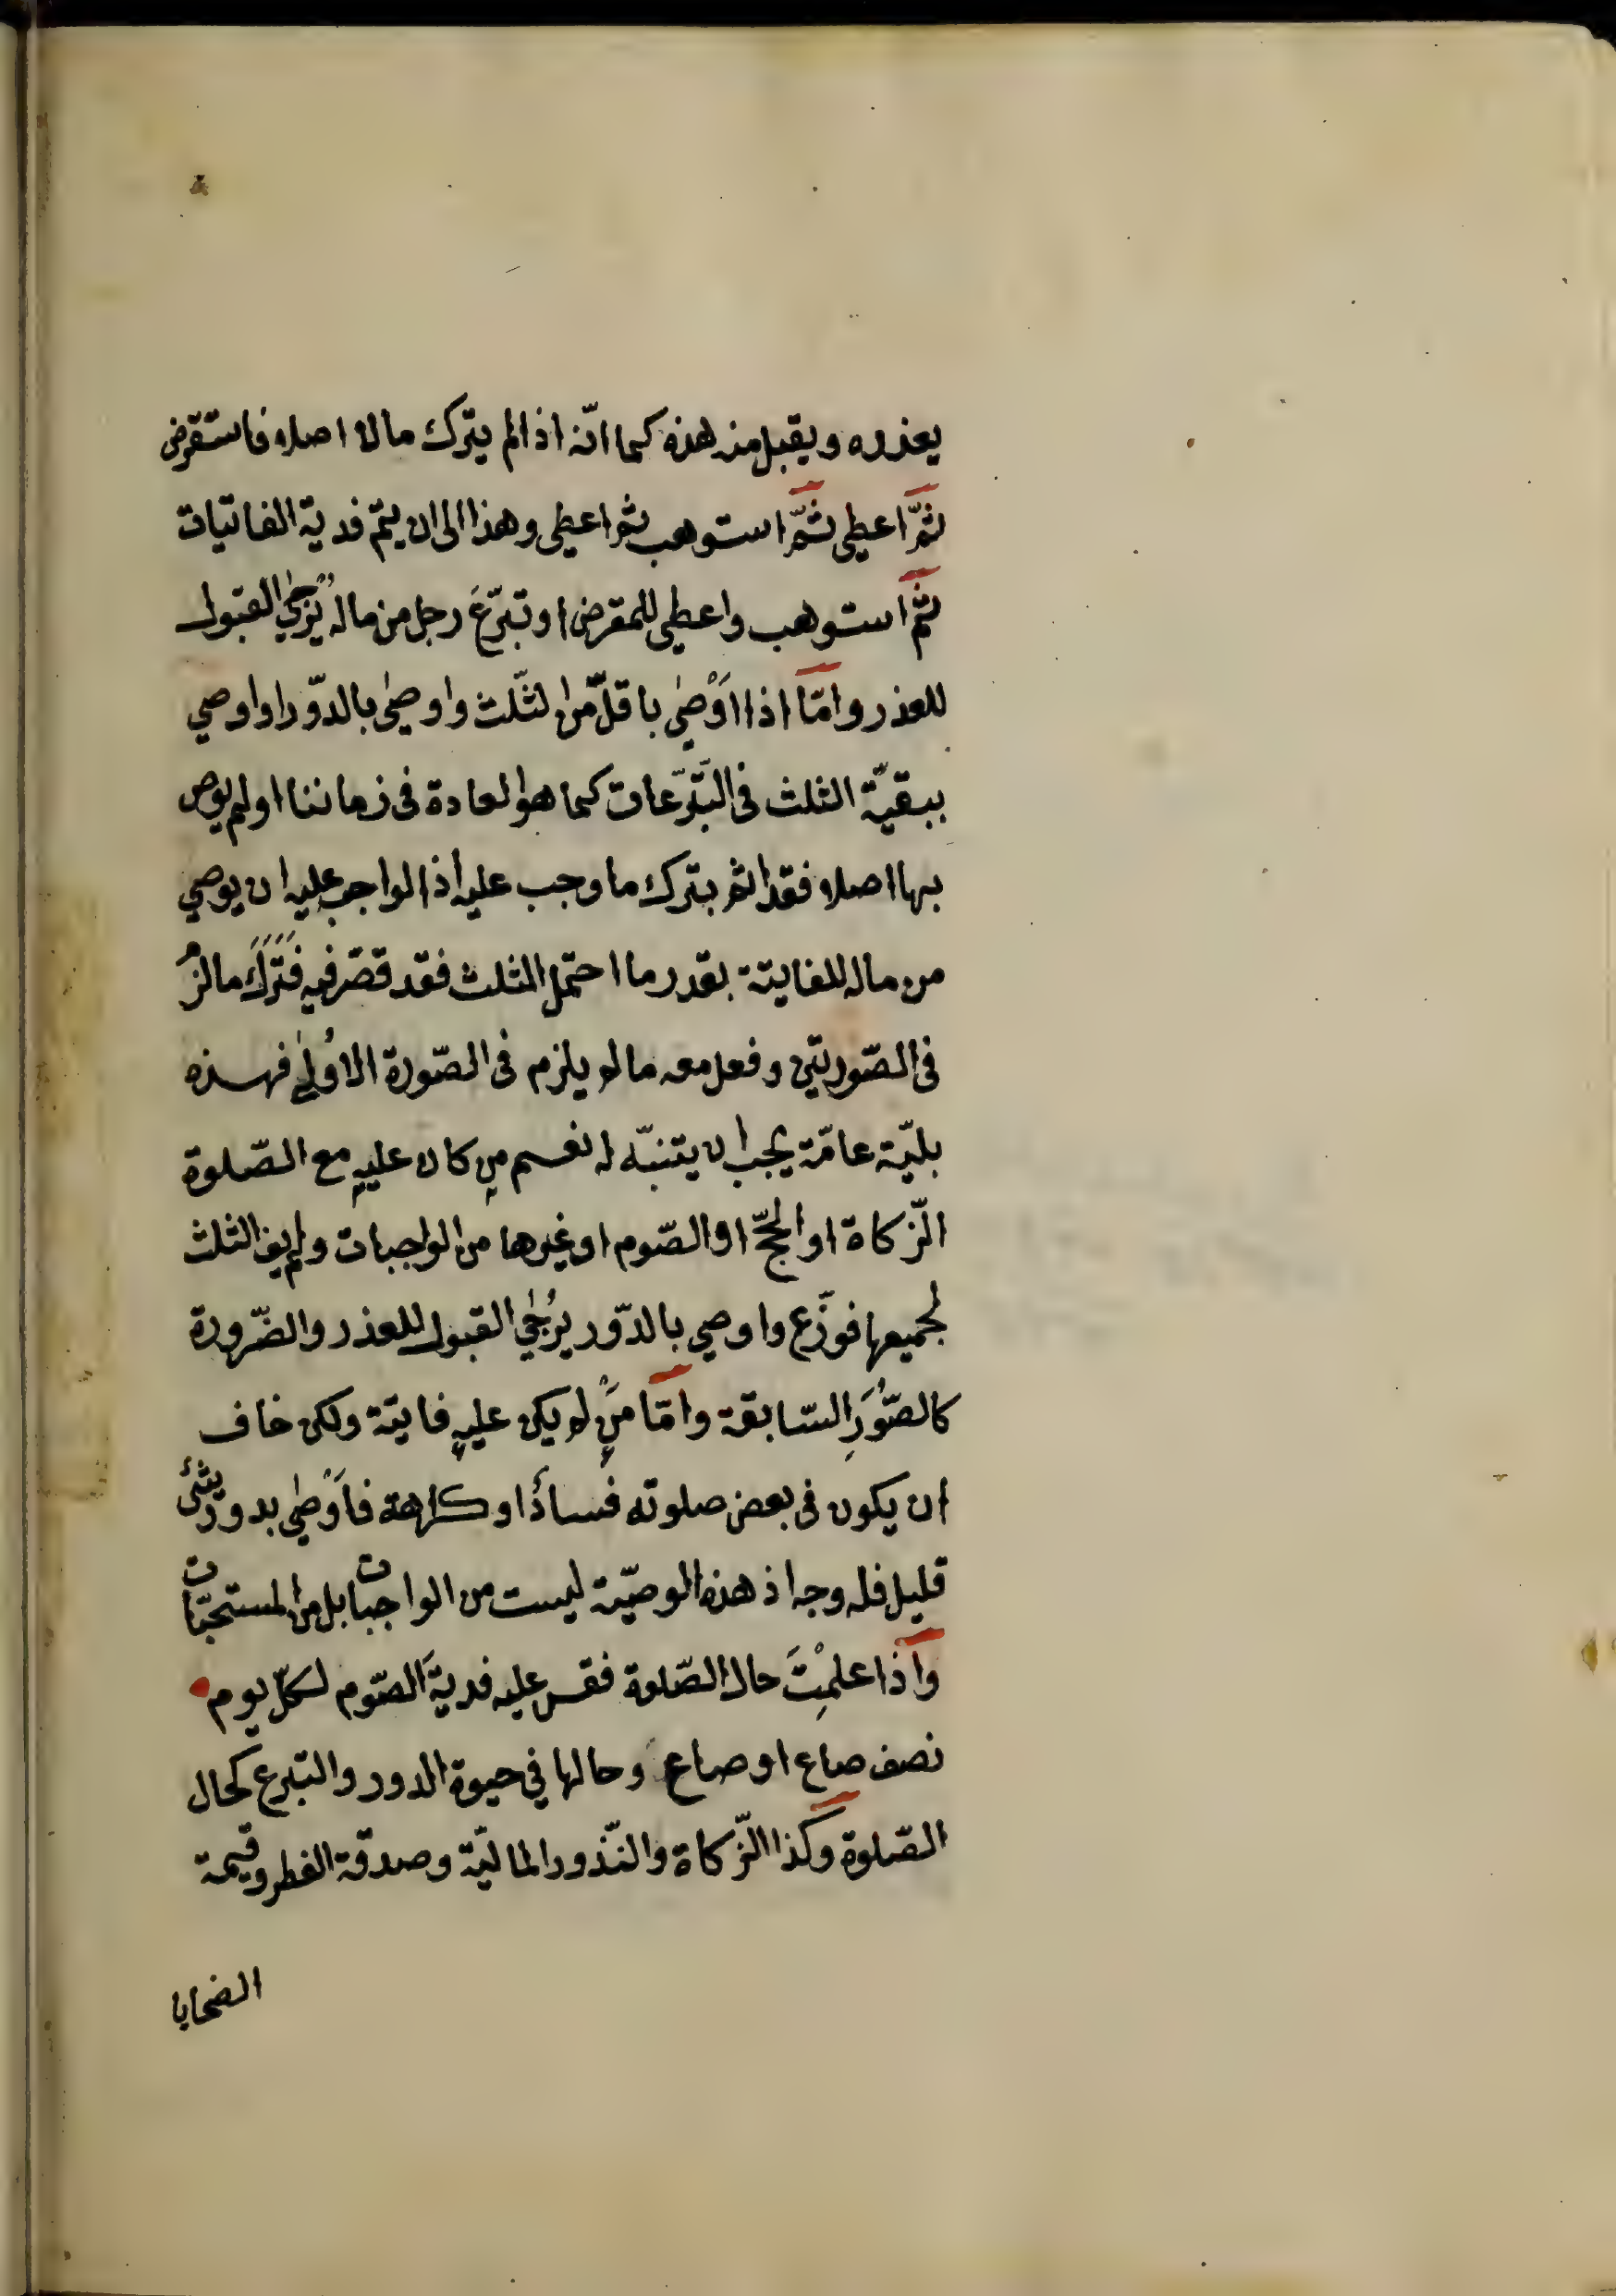 يعذره ويقبل منه هذه كما انّه اذا لم يترك مالا اصلا فاستقرض
ثمّ اعطى ثمّ استوهب ثم اعطى وهذا الى ان يتمّ فدية الفائتات
ثمّ استوهب واعطى للمقرض او تبرّعَ رجل من ماله يُرْجٰى القبول
للعذر وامّا اذا اَوْصٰى باقلّ من الثّلث واوصىٰ بالدّور او اوصي
ببقيّة الثلث فى التّبرّعات كما هو العادة فى زماننا او لم يوص
بها اصلا فقد اثم بترك ما وجب عليه اذ الواجب عليه ان يوصي
من ماله للفايتة بقدر ما احتمل الثلث فقد قصّر فيه فَتَرَكَ مالزمُ
فى الصّورتين وفعل معه ما لم يلزم فى الصّورة الاُولٰى فهذه
بليّة عامّة يجب ان يتنبّه له نعم من كان عليهِ مع الصّلوة
الزّكاة او الحجّ او الصّوم او غيرها من الواجبات ولم يف الثلث
لجميعها فوزّع واوصي بالدّور يُرْجٰى القبول للعذر والضّرورة
كالصُّوَرِ السّابقة وامّا مَنْ لم يكن عليهِ فايتة ولكن خاف
ان يكون فى بعض صلوته فسادًا او كراهة فاَوْصٰى بدور شئ
قليل فله وجه اذ هذه الوصيّة ليست من الواجبات بل من المستحبّات
واذا علمْتَ حال الصّلوة فقس عليه فديةَ الصّوم لكلّ يوم
نصف صاع او صاع وحالها في حيوة الدور والتبرع كحال
الصّلوة وكذا الزّكاة والنّذور الماليّة وصدقة الفطر وقيمة
الضحايا